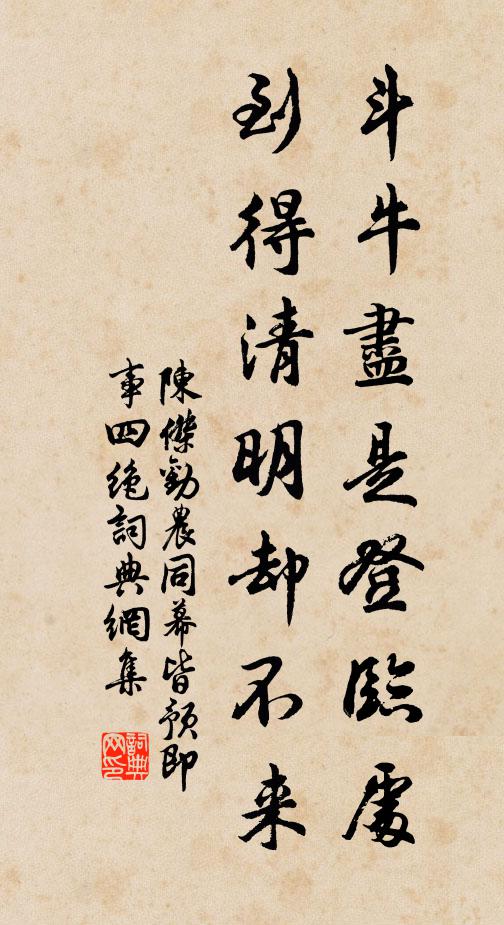 斗牛盡是登臨處
到得清明却不来
陳傑勸農同幕皆預即
事四絶詞典網集
詞典
网印